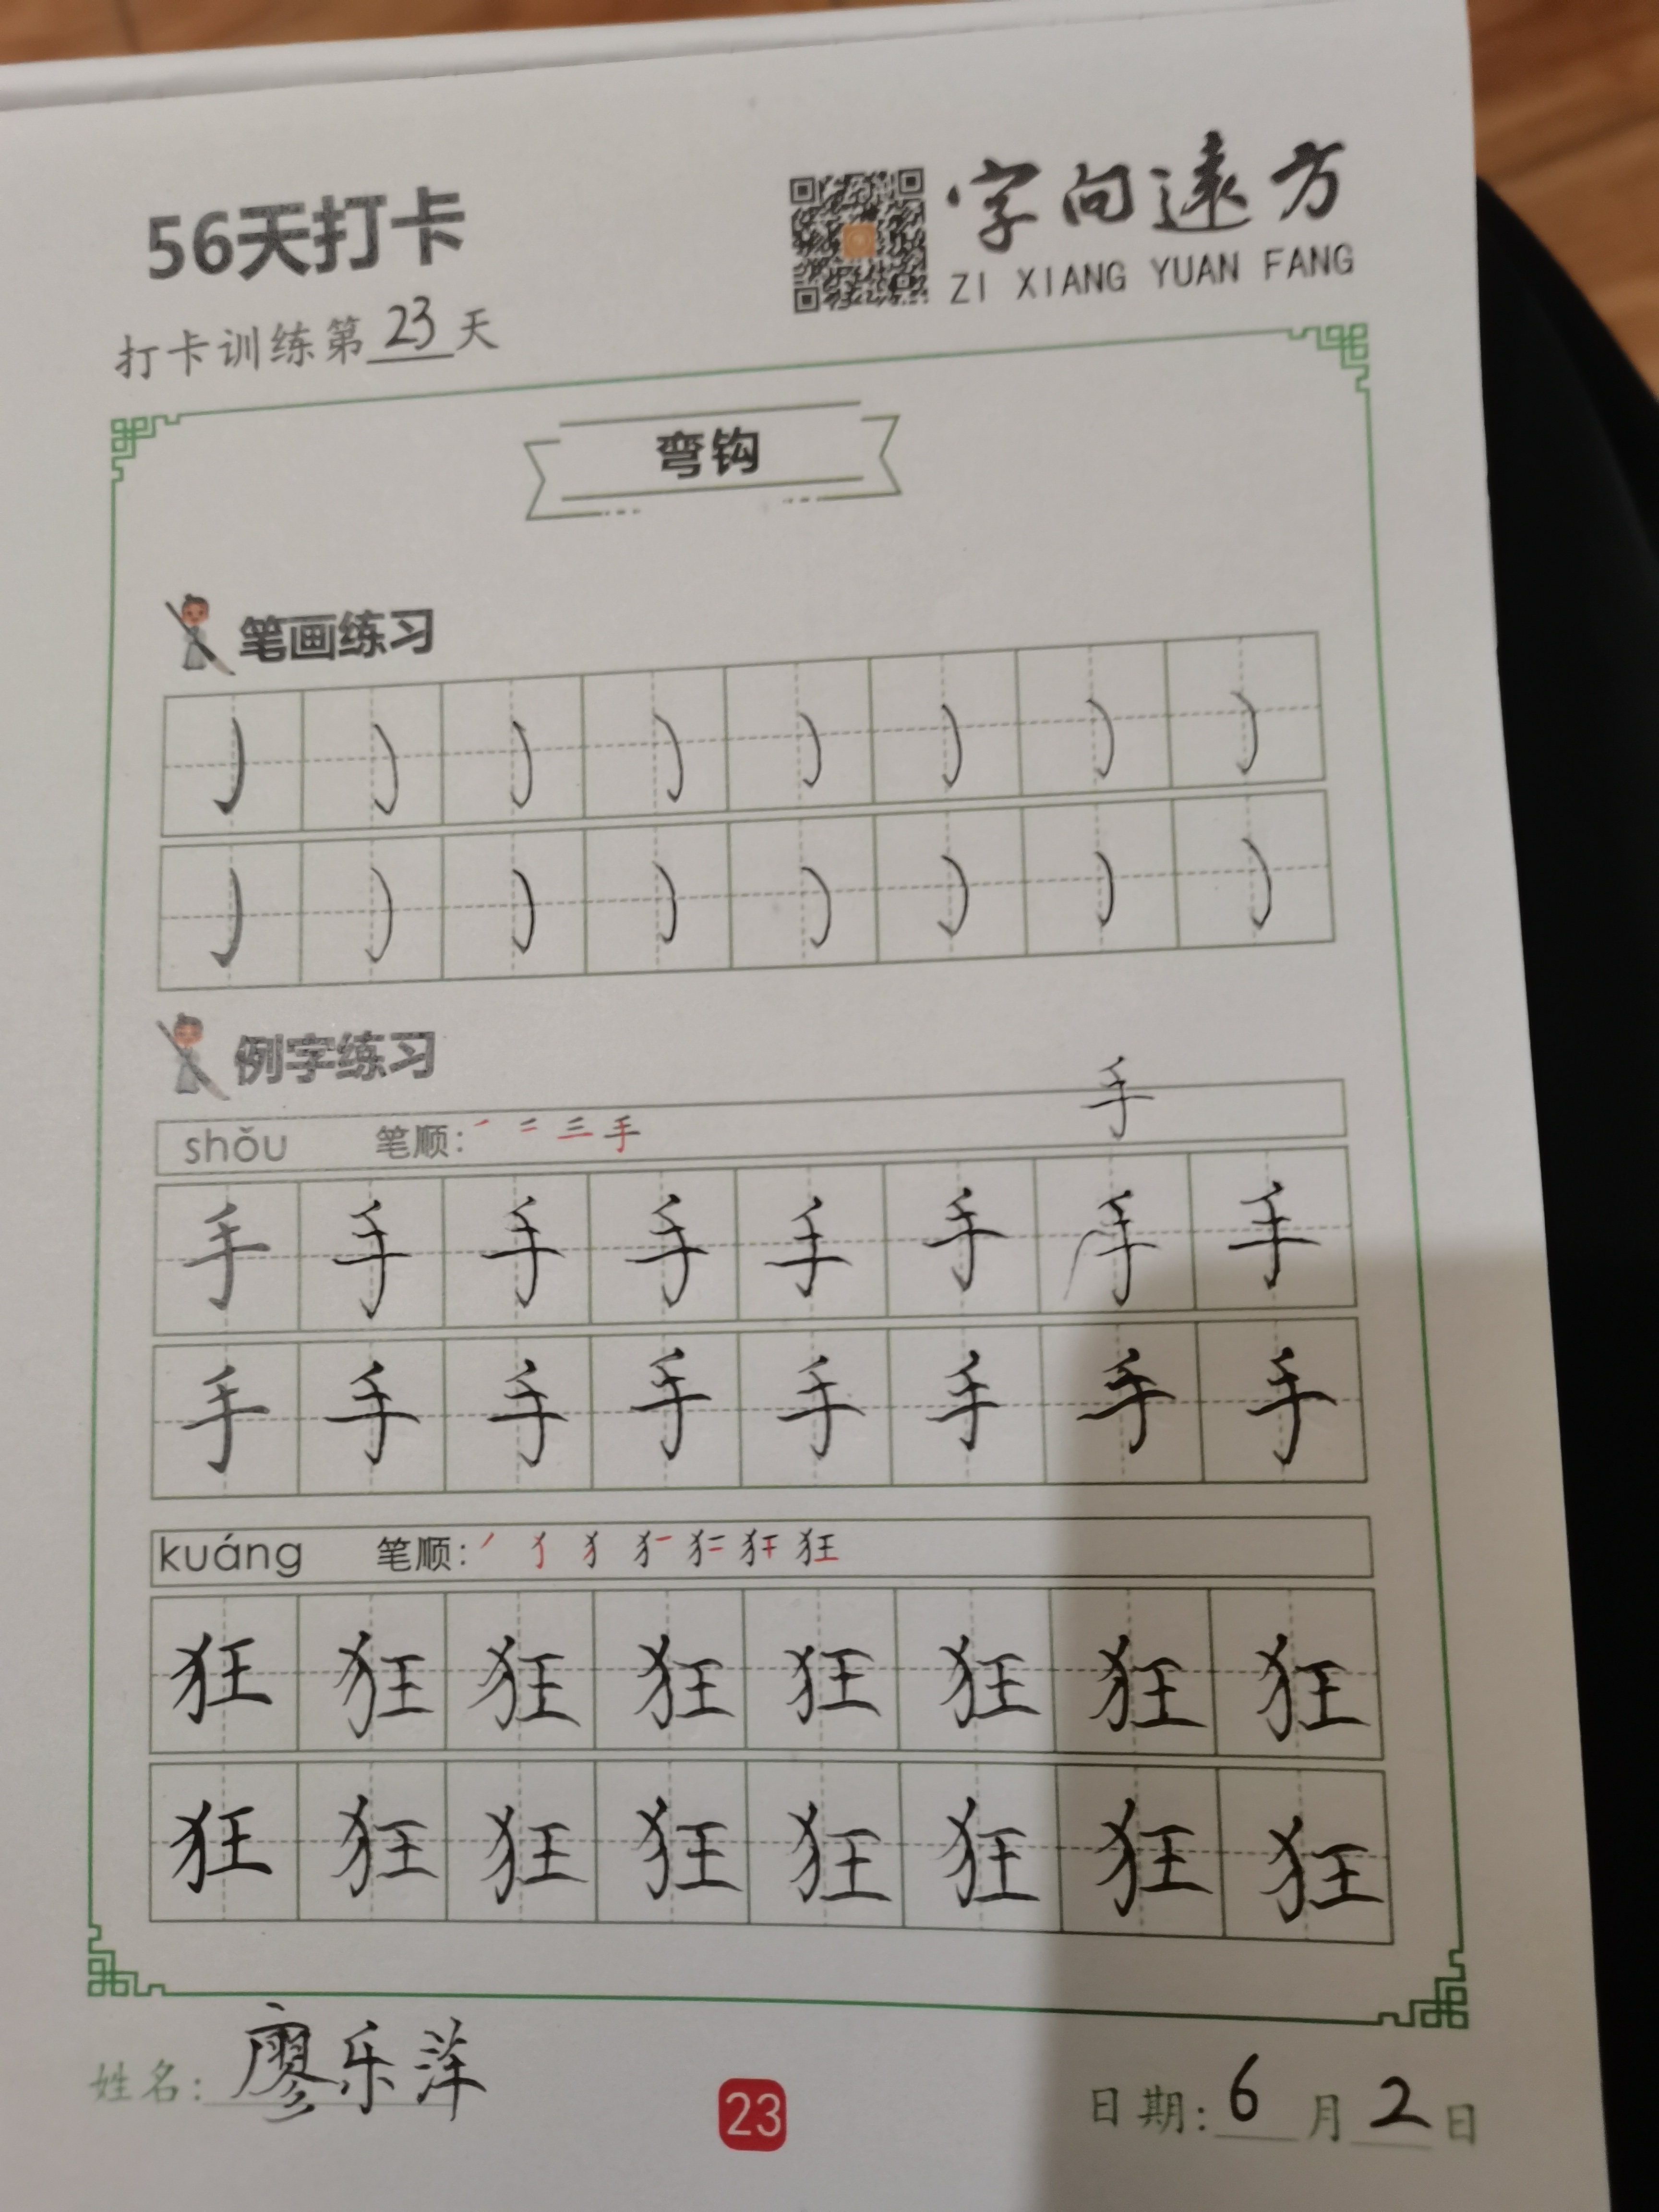 56天打卡
字向遠方
ZI XIANG YUAN FANG
打卡训练第23天
弯钩
笔画练习
例字练习
手
shǒu 笔顺: 手
手 手 手 手 手 手 手 手
手 手 手 手 手 手 手 手
kuáng 笔顺: 狂
狂 狂 狂 狂 狂 狂 狂 狂
狂 狂 狂 狂 狂 狂 狂 狂
姓名: 廖乐洋
23
日期: 6月2日